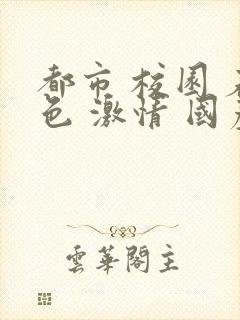 都市 校園
色 激情 國
雲華閣主